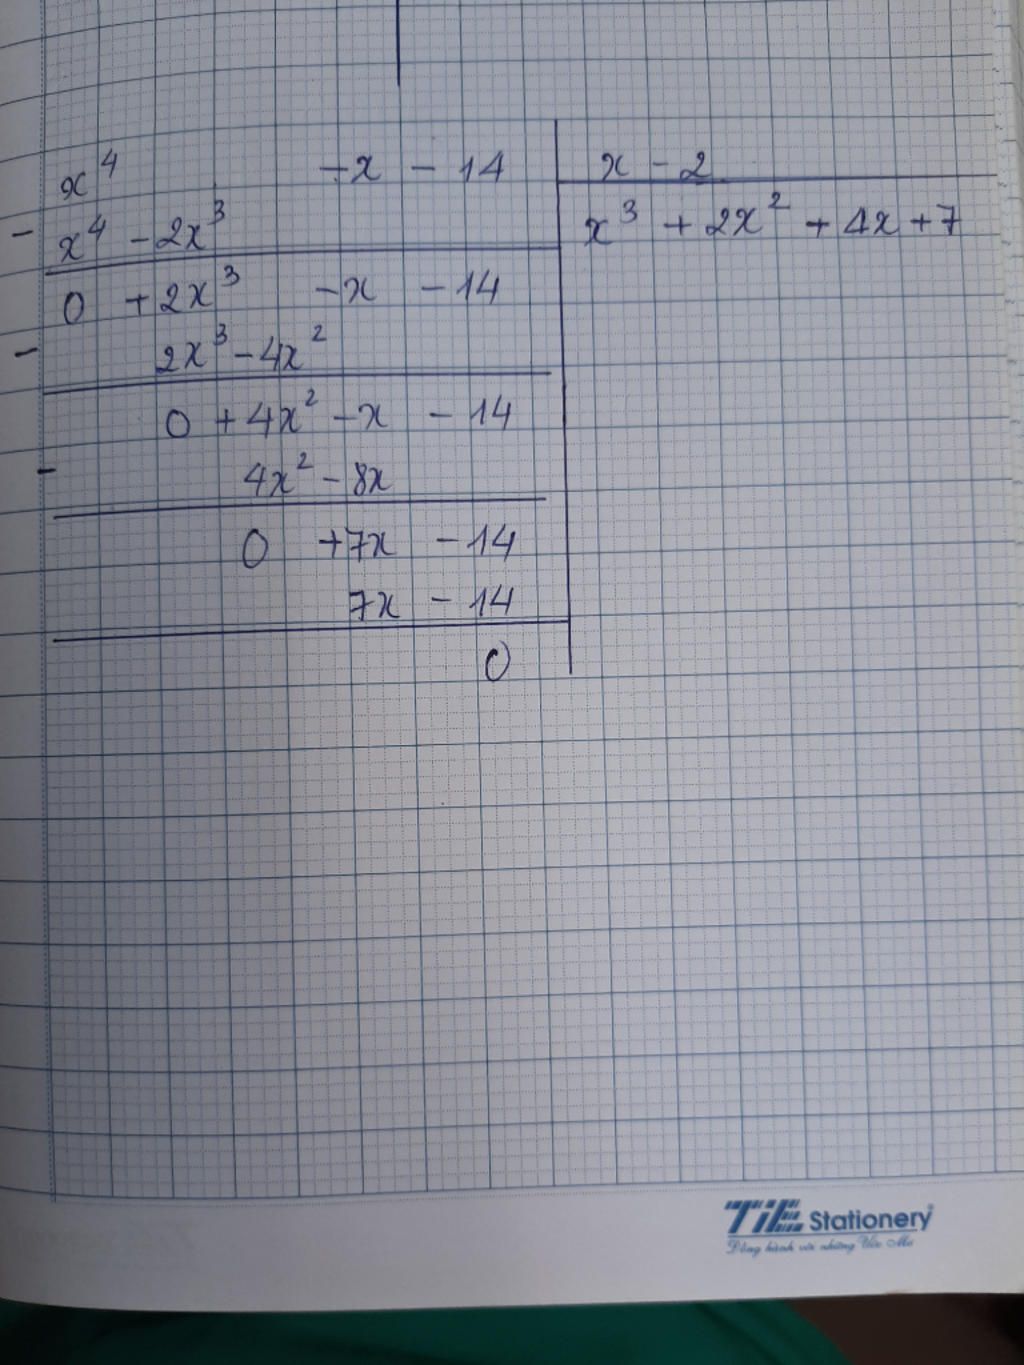 x⁴ -x - 14 x - 2
- x⁴ - 2x³ x³ + 2x² + 4x + 7
0 + 2x³ -x - 14
- 2x³ - 4x²
0 + 4x² - x - 14
- 4x² - 8x
0 +7x - 14
7x - 14
0
TiE Stationery
Đồng hành với những Ước Mơ